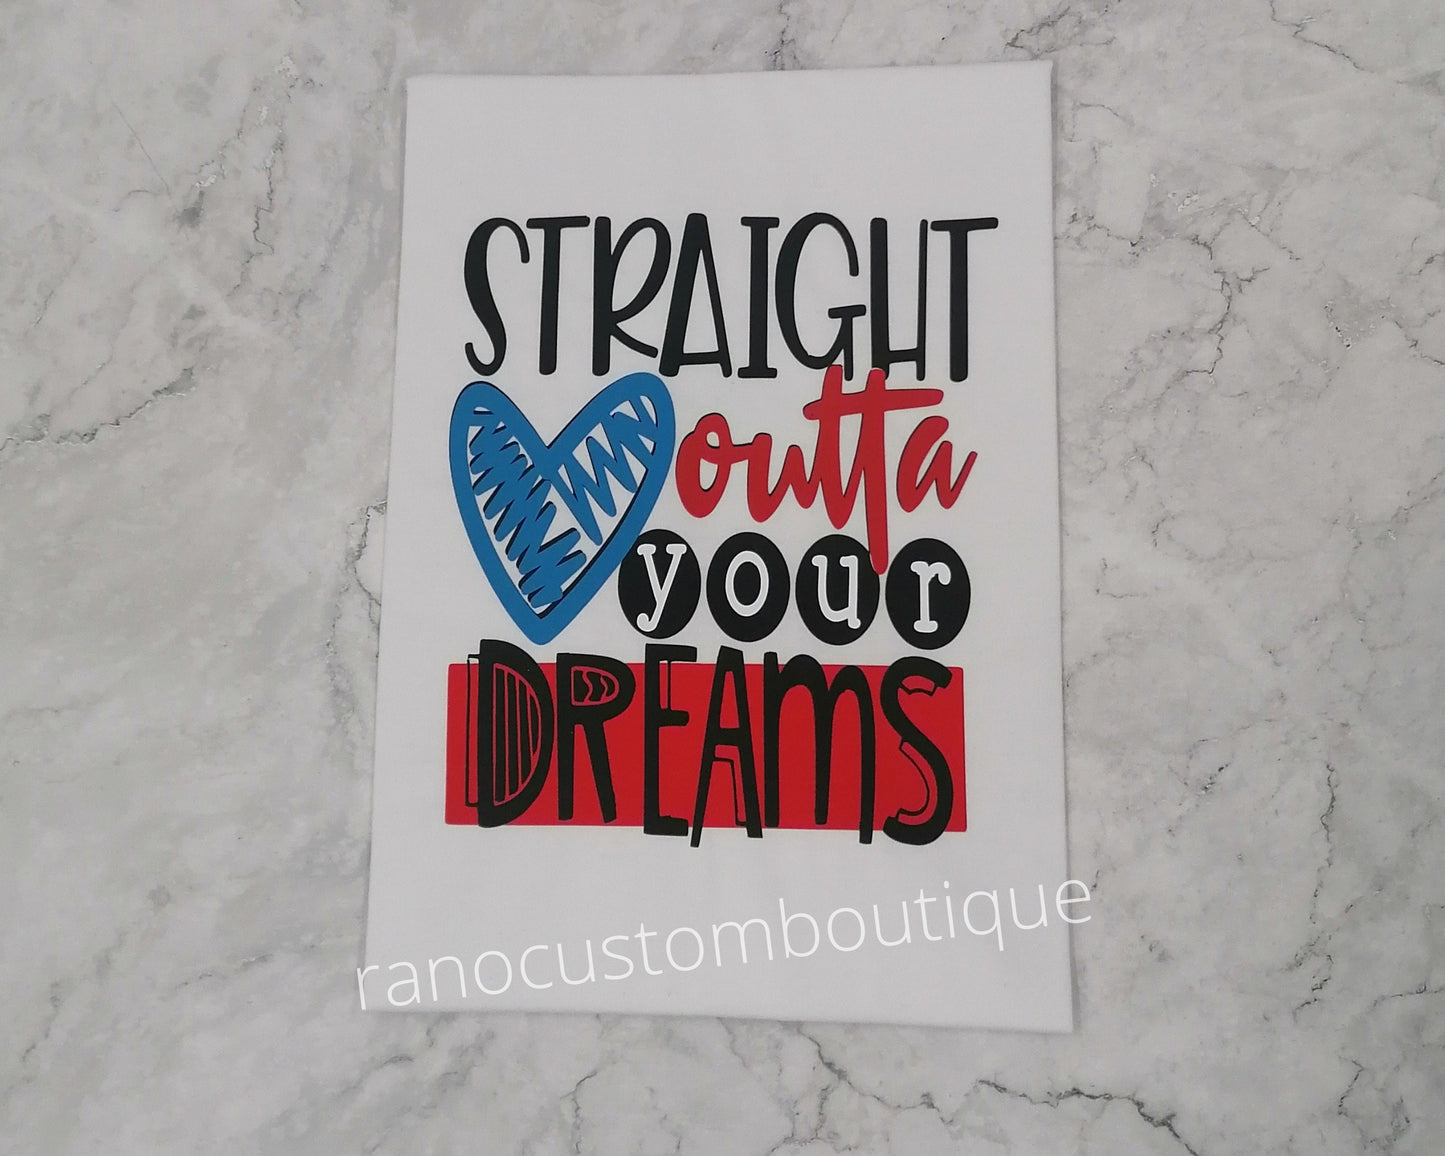 STRAIGHT
outta
your
DREAMS
ranocustomboutique